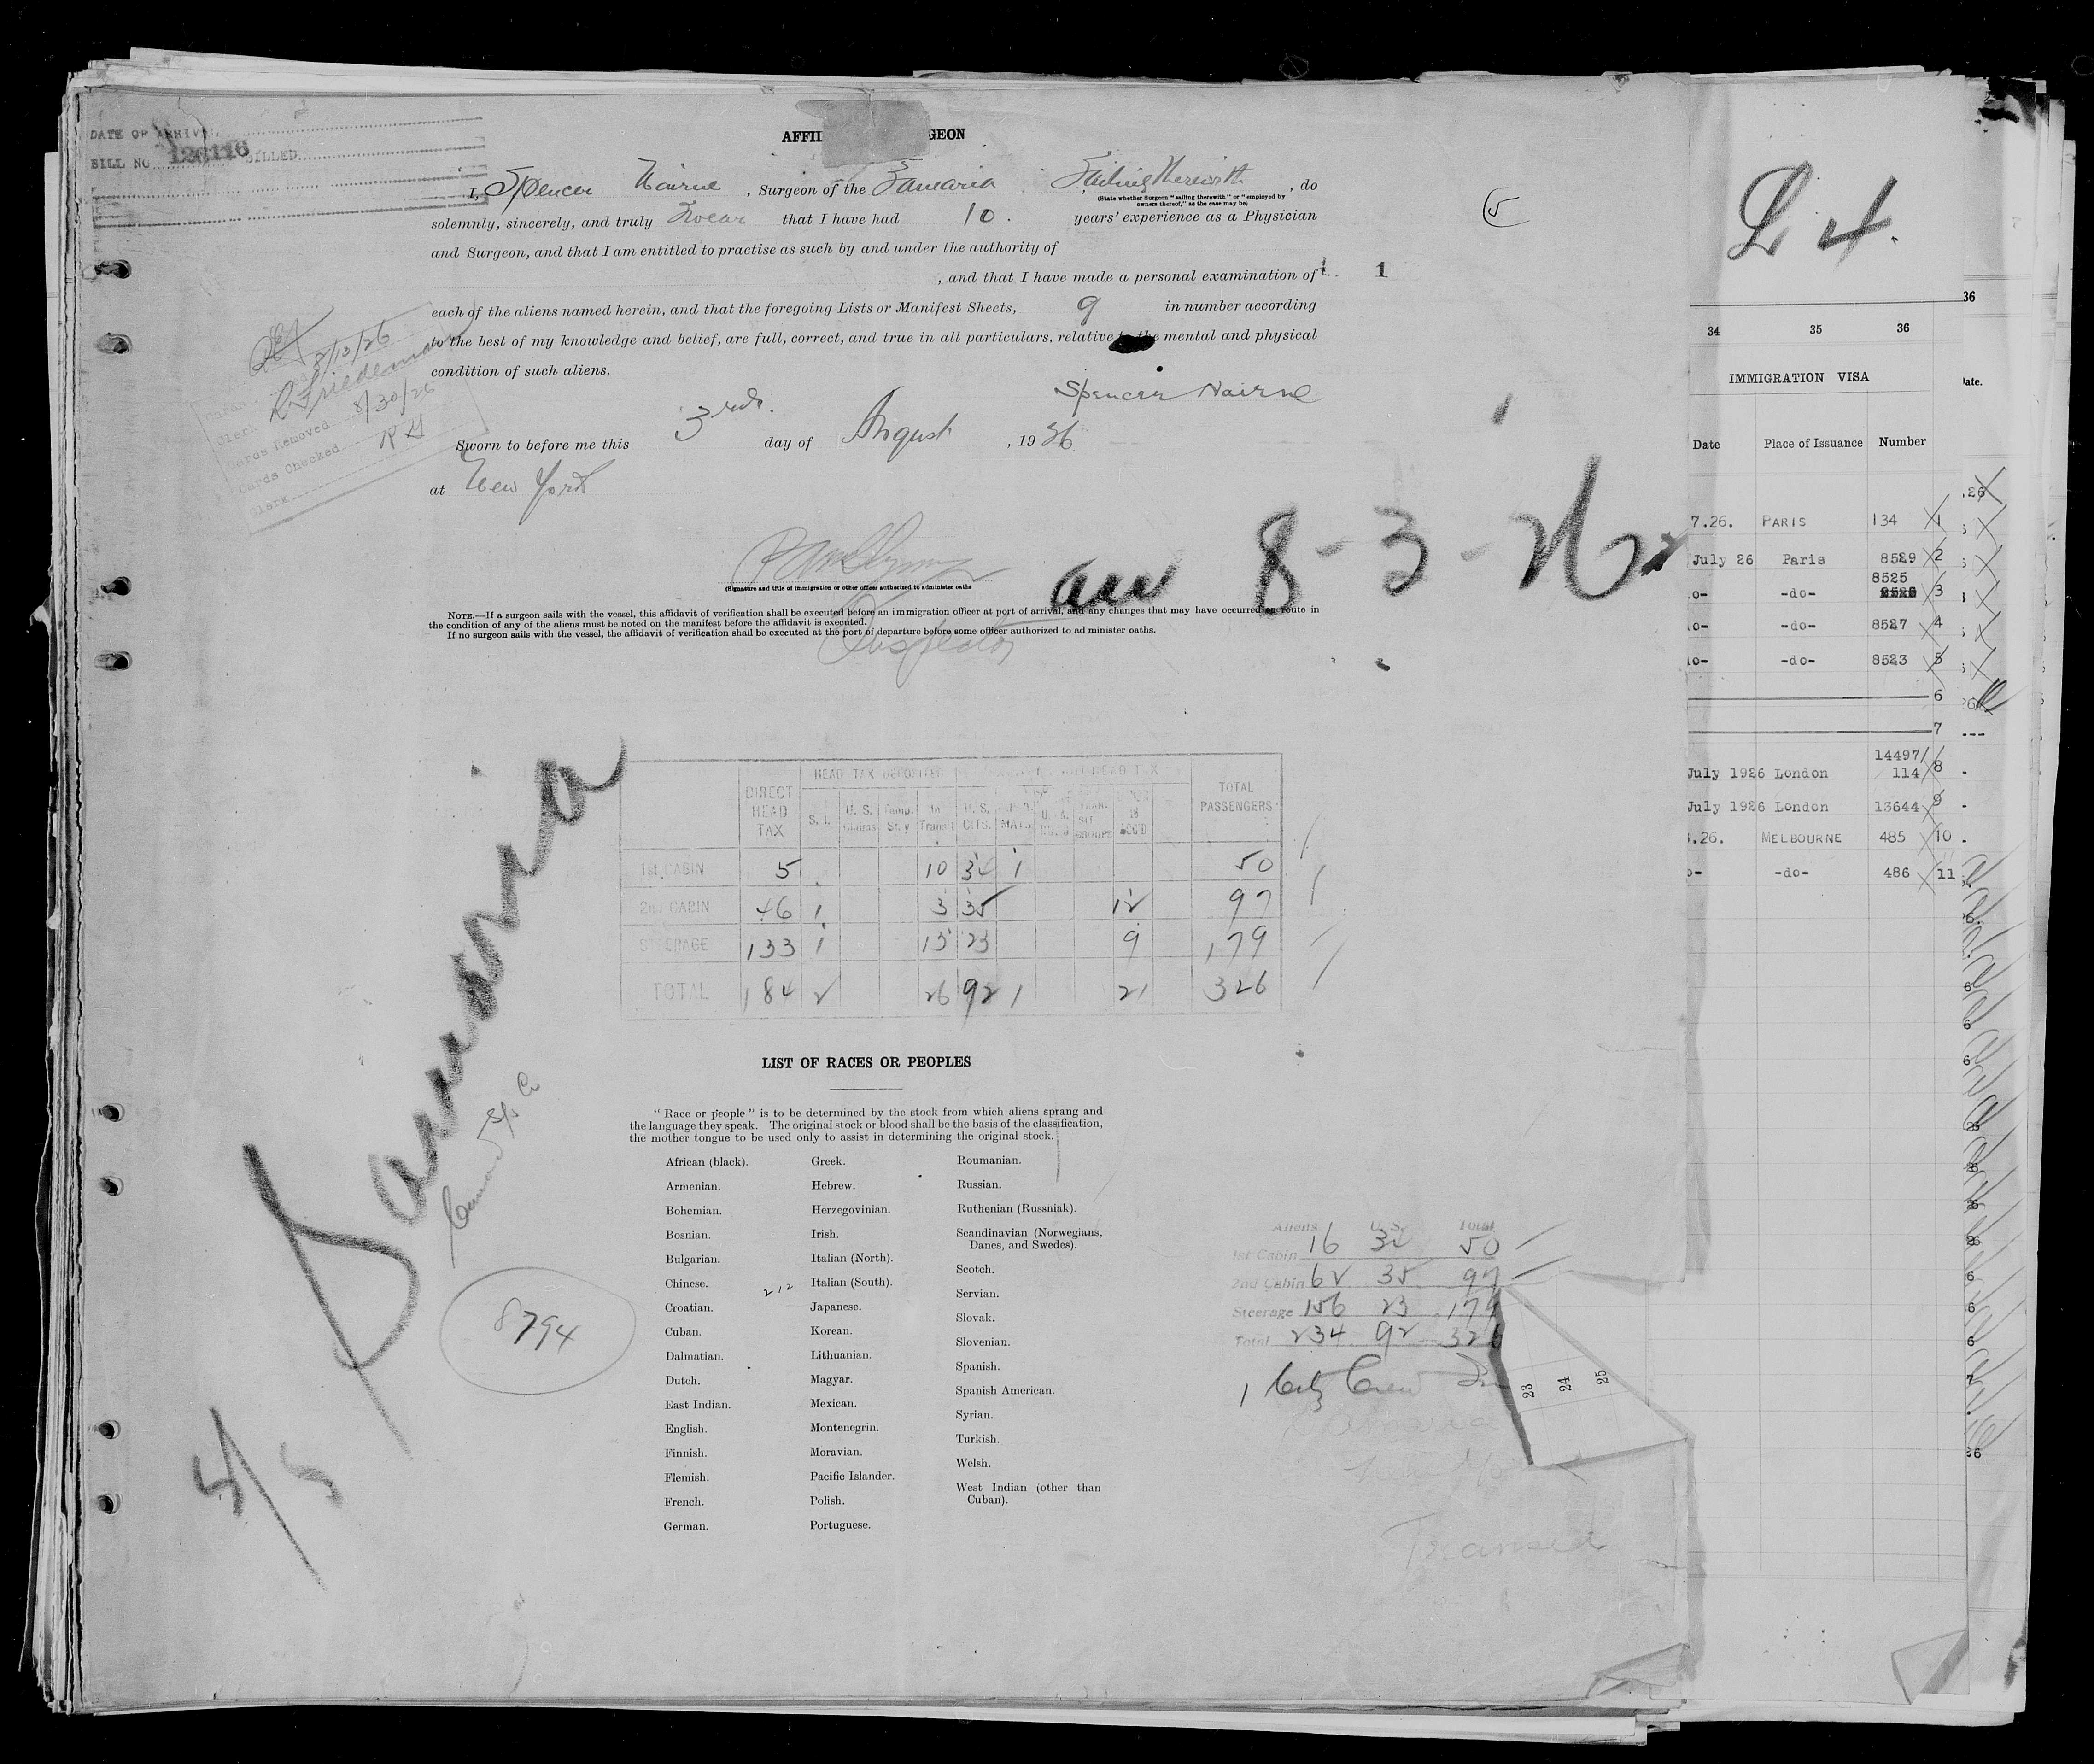 DATE OF ARRIVAL
BILL NO. 126116 BILLED
AFFI GEON
I, Spencer Nairne, Surgeon of the Samaria Sailing Therewith, do
(State whether Surgeon "sailing therewith" or "employed by
owners thereof," as the case may be)
solemnly, sincerely, and truly Swear that I have had 10. years' experience as a Physician
and Surgeon, and that I am entitled to practise as such by and under the authority of
, and that I have made a personal examination of
each of the aliens named herein, and that the foregoing Lists or Manifest Sheets, 9 in number according
to the best of my knowledge and belief, are full, correct, and true in all particulars, relative to the mental and physical
condition of such aliens.
Spencer Nairne
Sworn to before me this 3rd. day of August, 1926
at New York
(Signature and title of immigration or other officer authorized to administer oaths
Inspector
NOTE.—If a surgeon sails with the vessel, this affidavit of verification shall be executed before an immigration officer at port of arrival, and any changes that may have occurred en route in
the condition of any of the aliens must be noted on the manifest before the affidavit is executed.
If no surgeon sails with the vessel, the affidavit of verification shall be executed at the port of departure before some officer authorized to ad minister oaths.
5
1
8/12/26
R Friedeman
Cards Removed 8/30/26
Cards Checked RF
Clerk
arr 8-3-26
Samaria
Cunard S/S Co
8794
4/5
HEAD TAX DEPOSITED HEAD TAX
DIRECT HEAD TAX S. I. U. S. In Transit U. S. CITS. TOTAL PASSENGERS
1st CABIN 5 10 34 1 50
2nd CABIN 46 1 3 35 12 97
STEERAGE 133 1 13 23 9 179
TOTAL 184 2 26 92 1 21 326
LIST OF RACES OR PEOPLES
"Race or people" is to be determined by the stock from which aliens sprang and
the language they speak. The original stock or blood shall be the basis of the classification,
the mother tongue to be used only to assist in determining the original stock.
African (black). Greek. Roumanian.
Armenian. Hebrew. Russian.
Bohemian. Herzegovinian. Ruthenian (Russniak).
Bosnian. Irish. Scandinavian (Norwegians,
Danes, and Swedes).
Bulgarian. Italian (North).
Scotch.
Chinese. 212 Italian (South).
Servian.
Croatian. Japanese.
Slovak.
Cuban. Korean.
Slovenian.
Dalmatian. Lithuanian.
Spanish.
Dutch. Magyar.
Spanish American.
East Indian. Mexican.
Syrian.
English. Montenegrin.
Turkish.
Finnish. Moravian.
Welsh.
Flemish. Pacific Islander.
West Indian (other than
Cuban).
French. Polish.
German. Portuguese.
Aliens U.S. Total
1st Cabin 16 34 50
2nd Cabin 62 35 97
Steerage 156 23 179
Total 234 92 326
1 City Crew
23 24 25
L 4.
34 35 36
IMMIGRATION VISA
Date Place of Issuance Number
7.26. PARIS 134 1
July 26 Paris 8529 2
8525
o- -do- 3
o- -do- 8527 4
o- -do- 8523 5
6
7
14497/
July 1926 London 114 8
July 1926 London 13644 9
.26. MELBOURNE 485 10
o- -do- 486 11
36
Date.